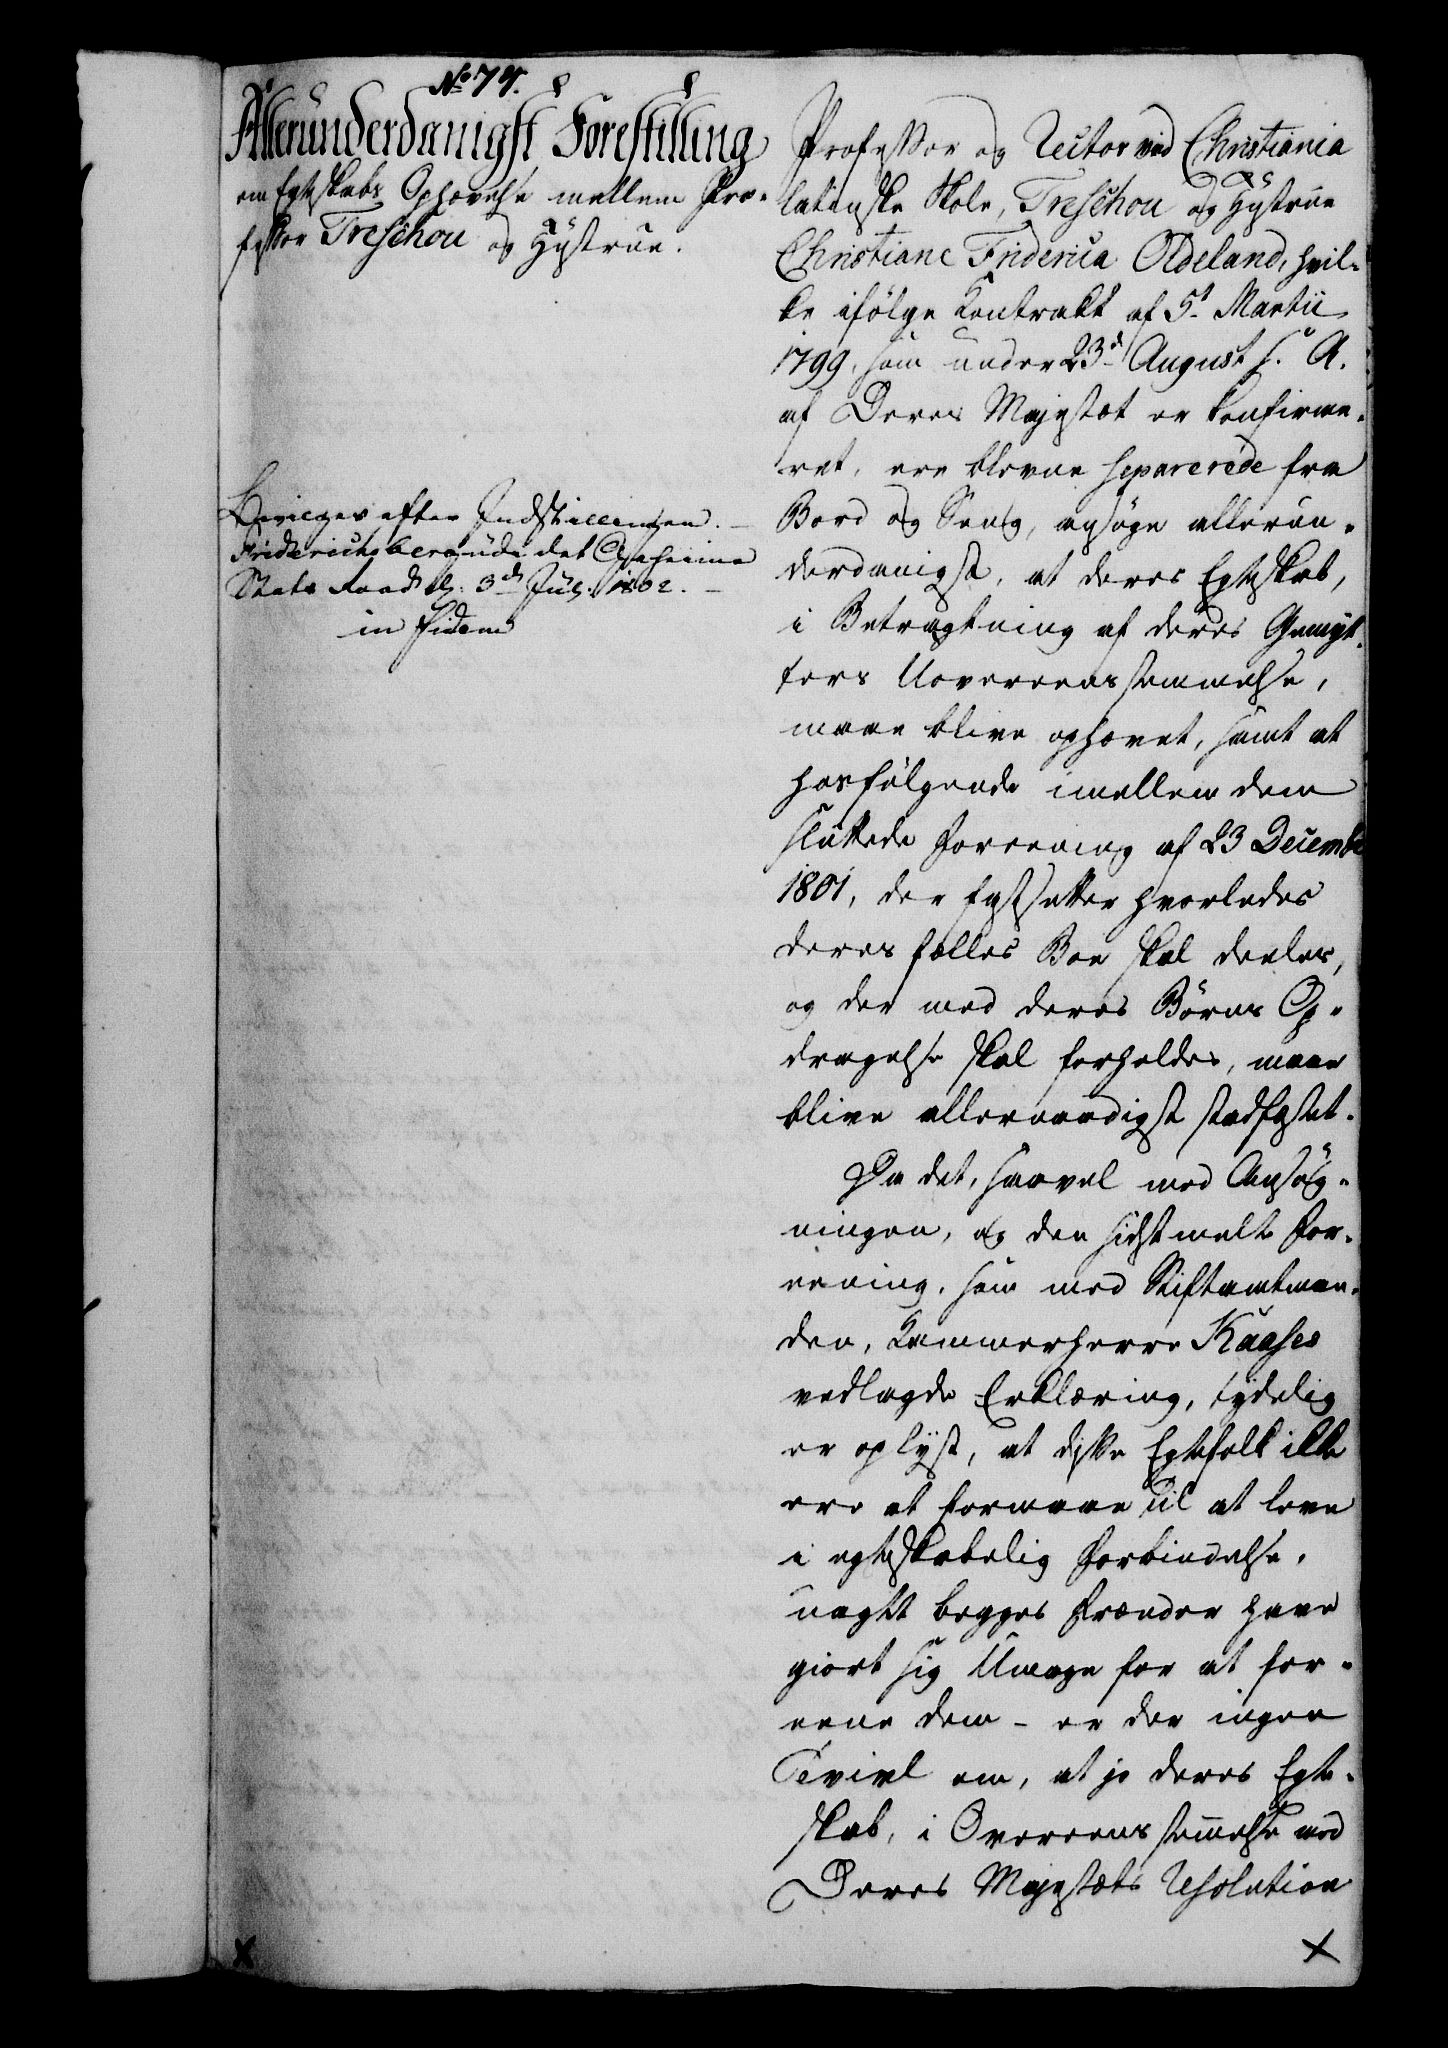 No 74.
Allerunderdanigst Forestilling
om Egteskabs Ophævelse mellem Pro-
fessor Treschou og Hustrue.
Bevilges efter Indstillingen. —
Friderichsberg udi det Geheime
Stats Raad d. 3d Jul. 1802. —
in fidem
Professor og Rector ved Christiania
latinske Skole, Treschou og Hustrue
Christiane Friderica Oldeland, hvil-
ke ifølge Contrakt af 5t Martii
1799, som under 23d August s. A.
af Deres Majestæt er konfirme-
ret, ere blevne separerede fra
Bord og Seng, ansøge allerun-
derdanigst, at deres Egteskab,
i Betragtning af deres Gemyt-
ters Uovereensstemmelse,
maae blive ophævet, samt at
hosfølgende imellem dem
sluttede Foreening af 23 Decembr
1801, der fastsætter hvorledes
deres fælles Boe skal deeles,
og der med deres Børns Op-
dragelse skal forholdes, maae
blive allernaadigst stadfæstet.
Da det, saavel med Ansøg-
ningen, og den sidstmelte For-
eening, som med Stiftamtman-
den, Kammerherre Kaases
vedlagde Erklæring, tydelig
er oplyst, at disse Egtefolk ikke
ere at formaae til at leve
i egteskabelig Forbindelse,
uagtt begges Frænder have
giort sig Umage for at for-
eene dem – er der ingen
Tvivl om, at jo deres Egte-
skab, i Overeensstemmelse med
Deres Majestæts Resolution